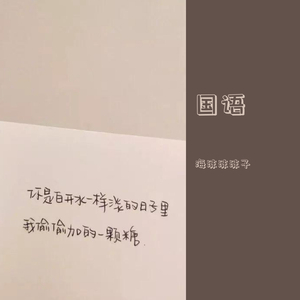 国语
海沫沫沫子
你是白开水一样淡的日子里
我偷偷加的一颗糖